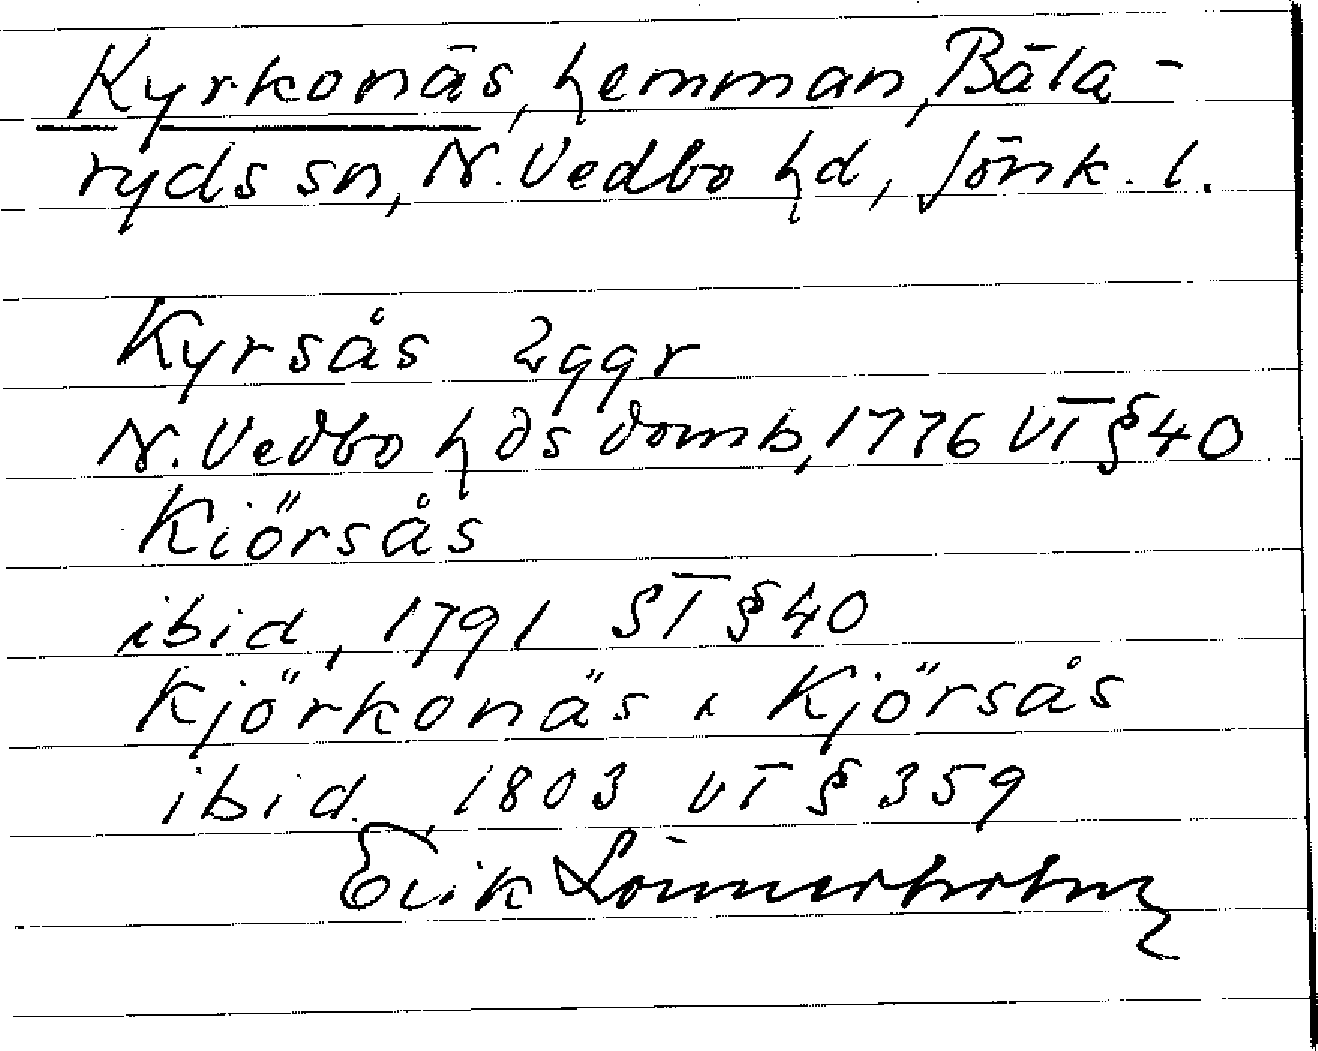 Kyrkonäs, hemman, Bäla-
ryds sn, N. Vedbo hd, Jönk. l.
Kyrsås 2 ggr
N. Vedbo hds domb, 1776 VT § 40
Kiörsås
ibid, 1791 ST § 40
Kjörkonäs i Kjörsås
ibid., 1803 VT § 359
Erik Lönnerholm